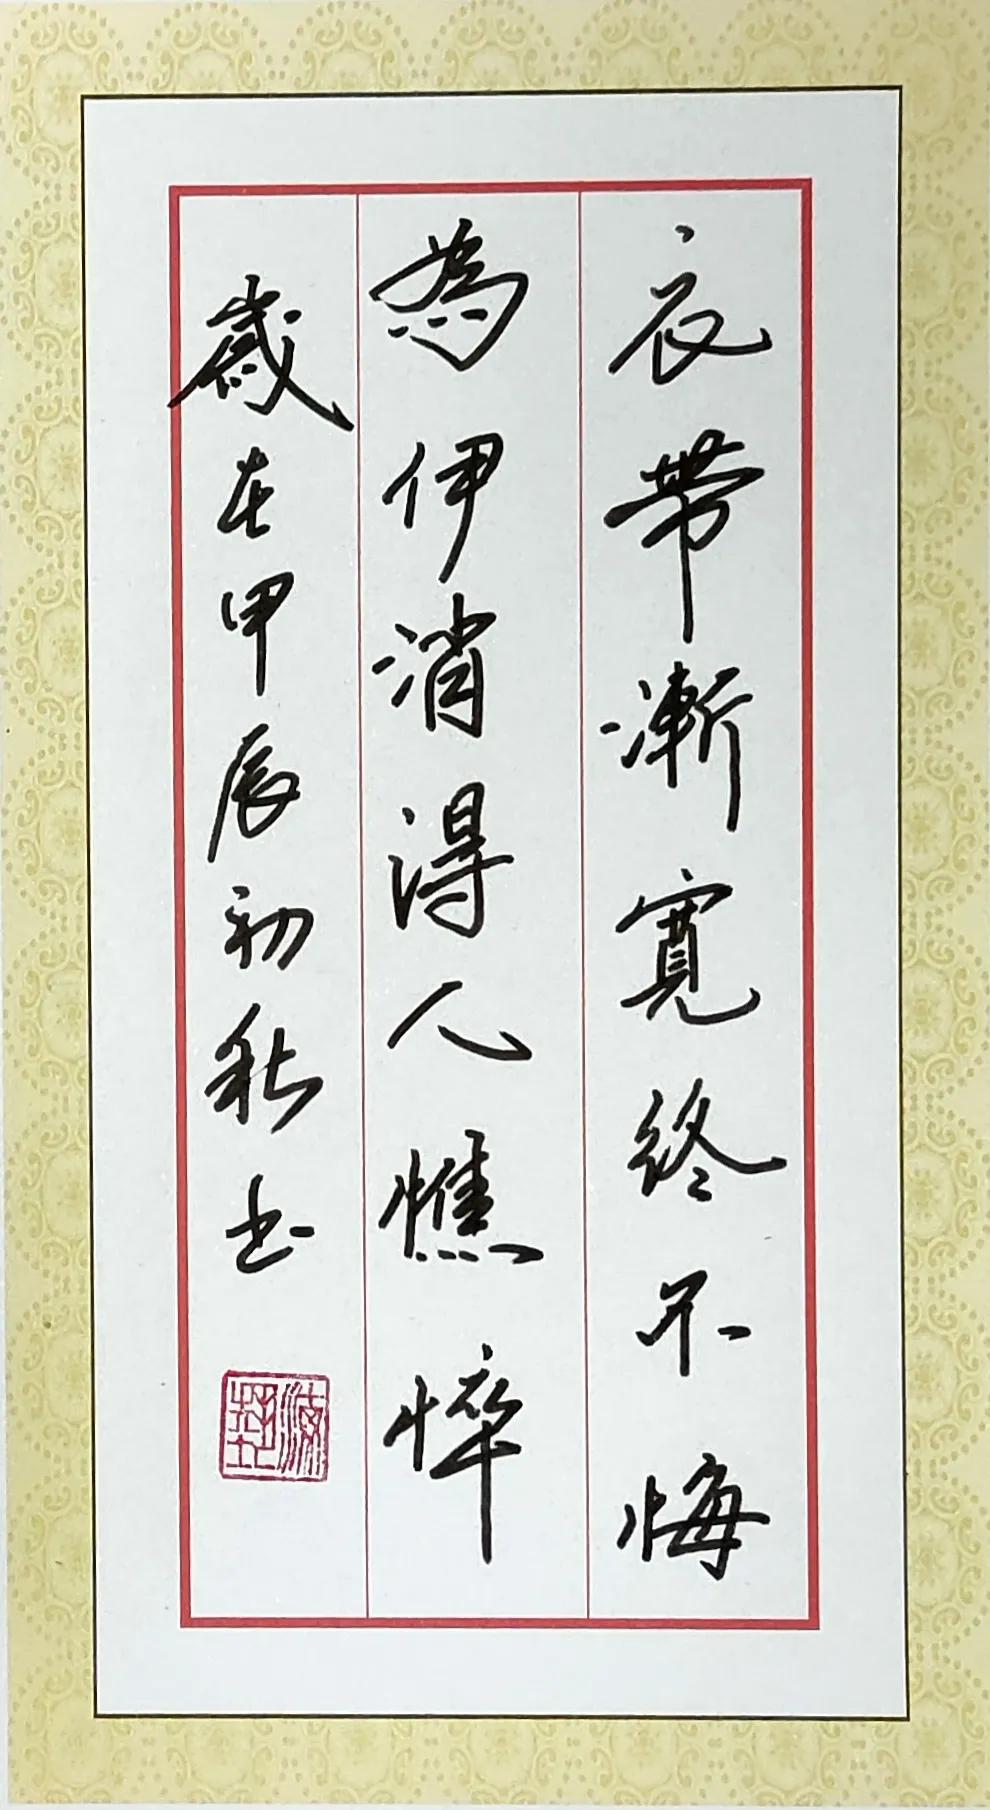 衣帶漸寬終不悔
為伊消得人憔悴
歲在甲辰初秋书